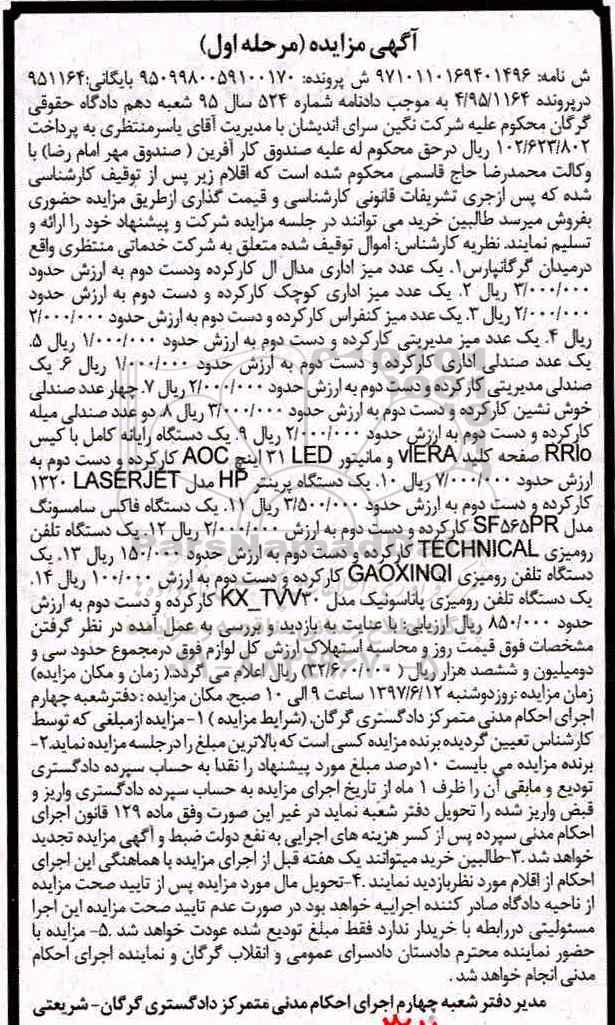 آگهی مزایده (مرحله اول)
ش نامه: ۹۷۱۰۱۱۰۱۶۹۴۰۱۴۹۶ ش پرونده: ۹۵۰۹۹۸۰۰۵۹۱۰۰۱۷۰ بایگانی:۹۵۱۱۶۴
درپرونده ۴/۹۵/۱۱۶۴ به موجب دادنامه شماره ۵۲۴ سال ۹۵ شعبه دهم دادگاه حقوقی
گرگان محکوم علیه شرکت نگین سرای اندیشان با مدیریت آقای یاسرمنتظری به پرداخت
۱۰۲/۶۲۳/۸۰۲ ریال درحق محکوم له علیه صندوق کار آفرین ( صندوق مهر امام رضا) با
وکالت محمدرضا حاج قاسمی محکوم شده است که اقلام زیر پس از توقیف کارشناسی
شده که پس ازجری تشریفات قانونی کارشناسی و قیمت گذاری ازطریق مزایده حضوری
بفروش میرسد طالبین خرید می توانند در جلسه مزایده شرکت و پیشنهاد خود را ارائه و
تسلیم نمایند. نظریه کارشناس: اموال توقیف شده متعلق به شرکت خدماتی منتظری واقع
درمیدان گرگانپارس۱. یک عدد میز اداری مدال ال کارکرده ودست دوم به ارزش حدود
۳/۰۰۰/۰۰۰ ریال ۲. یک عدد میز اداری کوچک کارکرده و دست دوم به ارزش حدود
۲/۰۰۰/۰۰۰ ریال ۳. یک عدد میز کنفراس کارکرده و دست دوم به ارزش حدود ۲/۰۰۰/۰۰۰
ریال ۴. یک عدد میز مدیریتی کارکرده و دست دوم به ارزش حدود ۱/۰۰۰/۰۰۰ ریال ۵.
یک عدد صندلی اداری کارکرده و دست دوم به ارزش حدود ۱/۰۰۰/۰۰۰ ریال ۶. یک
صندلی مدیریتی کارکرده و دست دوم به ارزش حدود ۲/۰۰۰/۰۰۰ ریال ۷. چهار عدد صندلی
خوش نشین کارکرده و دست دوم به ارزش حدود ۲/۰۰۰/۰۰۰ ریال ۸. دو عدد صندلی میله
کارکرده و دست دوم به ارزش حدود ۲/۰۰۰/۰۰۰ ریال ۹. یک دستگاه رایانه کامل با کیس
RRIo صفحه کلید vIERA و مانیتور LED ۳۱ اینچ AOC کارکرده و دست دوم به
ارزش حدود ۷/۰۰۰/۰۰۰ ریال ۱۰. یک دستگاه پرینتر HP مدل LASERJET ۱۳۲۰
کارکرده و دست دوم به ارزش حدود ۳/۵۰۰/۰۰۰ ریال ۱۱. یک دستگاه فاکس سامسونگ
مدل SF۵۶۵PR کارکرده و دست دوم به ارزش ۲/۰۰۰/۰۰۰ ریال ۱۲. یک دستگاه تلفن
رومیزی TECHNICAL کارکرده و دست دوم به ارزش حدود ۱۵۰/۰۰۰ ریال ۱۳. یک
دستگاه تلفن رومیزی GAOXINQI کارکرده و دست دوم به ارزش ۱۰۰/۰۰۰ ریال ۱۴.
یک دستگاه تلفن رومیزی پاناسونیک مدل KX_TVV۳۰ کارکرده و دست دوم به ارزش
حدود ۸۵۰/۰۰۰ ریال ارزیابی: با عنایت به بازدید و بررسی به عمل آمده در نظر گرفتن
مشخصات فوق قیمت روز و محاسبه استهلاک ارزش کل لوازم فوق درمجموع حدود سی و
دومیلیون و ششصد هزار ریال ( ۳۲/۶۰۰/۰۰۰) ریال اعلام می گردد.( زمان و مکان مزایده)
زمان مزایده :روزدوشنبه ۱۳۹۷/۶/۱۲ ساعت ۹ الی ۱۰ صبح. مکان مزایده : دفترشعبه چهارم
اجرای احکام مدنی متمرکز دادگستری گرگان.(شرایط مزایده ) ۱- مزایده ازمبلغی که توسط
کارشناس تعیین گردیده برنده مزایده کسی است که بالاترین مبلغ را درجلسه مزایده نماید.۲-
برنده مزایده می بایست ۱۰درصد مبلغ مورد پیشنهاد را نقدا به حساب سپرده دادگستری
تودیع و مابقی آن را ظرف ۱ ماه از تاریخ اجرای مزایده به حساب سپرده دادگستری واریز و
قبض واریز شده را تحویل دفتر شعبه نماید در غیر این صورت وفق ماده ۱۲۹ قانون اجرای
احکام مدنی سپرده پس از کسر هزینه های اجرایی به نفع دولت ضبط و آگهی مزایده تجدید
خواهد شد .۳-طالبین خرید میتوانند یک هفته قبل از اجرای مزایده با هماهنگی این اجرای
احکام از اقلام مورد نظربازدید نمایند .۴-تحویل مال مورد مزایده پس از تایید صحت مزایده
از ناحیه دادگاه صادر کننده اجراییه خواهد بود در صورت عدم تایید صحت مزایده این اجرا
مسئولیتی دررابطه با خریدار ندارد فقط مبلغ تودیع شده عودت خواهد شد .۵- مزایده با
حضور نماینده محترم دادستان دادسرای عمومی و انقلاب گرگان و نماینده اجرای احکام
مدنی انجام خواهد شد .
مدیر دفتر شعبه چهارم اجرای احکام مدنی متمرکز دادگستری گرگان- شریعتی